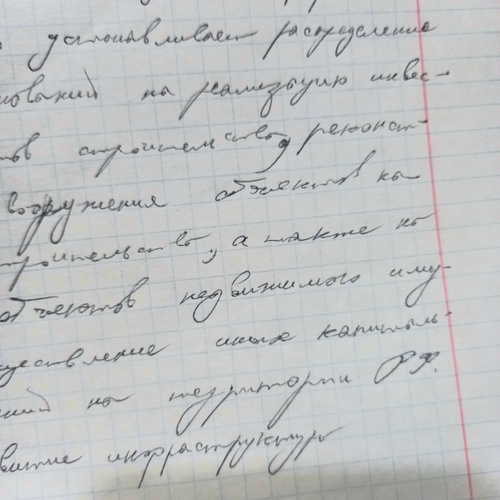 устанавливает распределение
нований на реализацию инвес-
тов строительства, реконст-
вооружения объектов ка-
троительства, а также на
объектов недвижимого иму-
ществление иных капиталь-
ний на территории РФ.
витие инфраструктуры